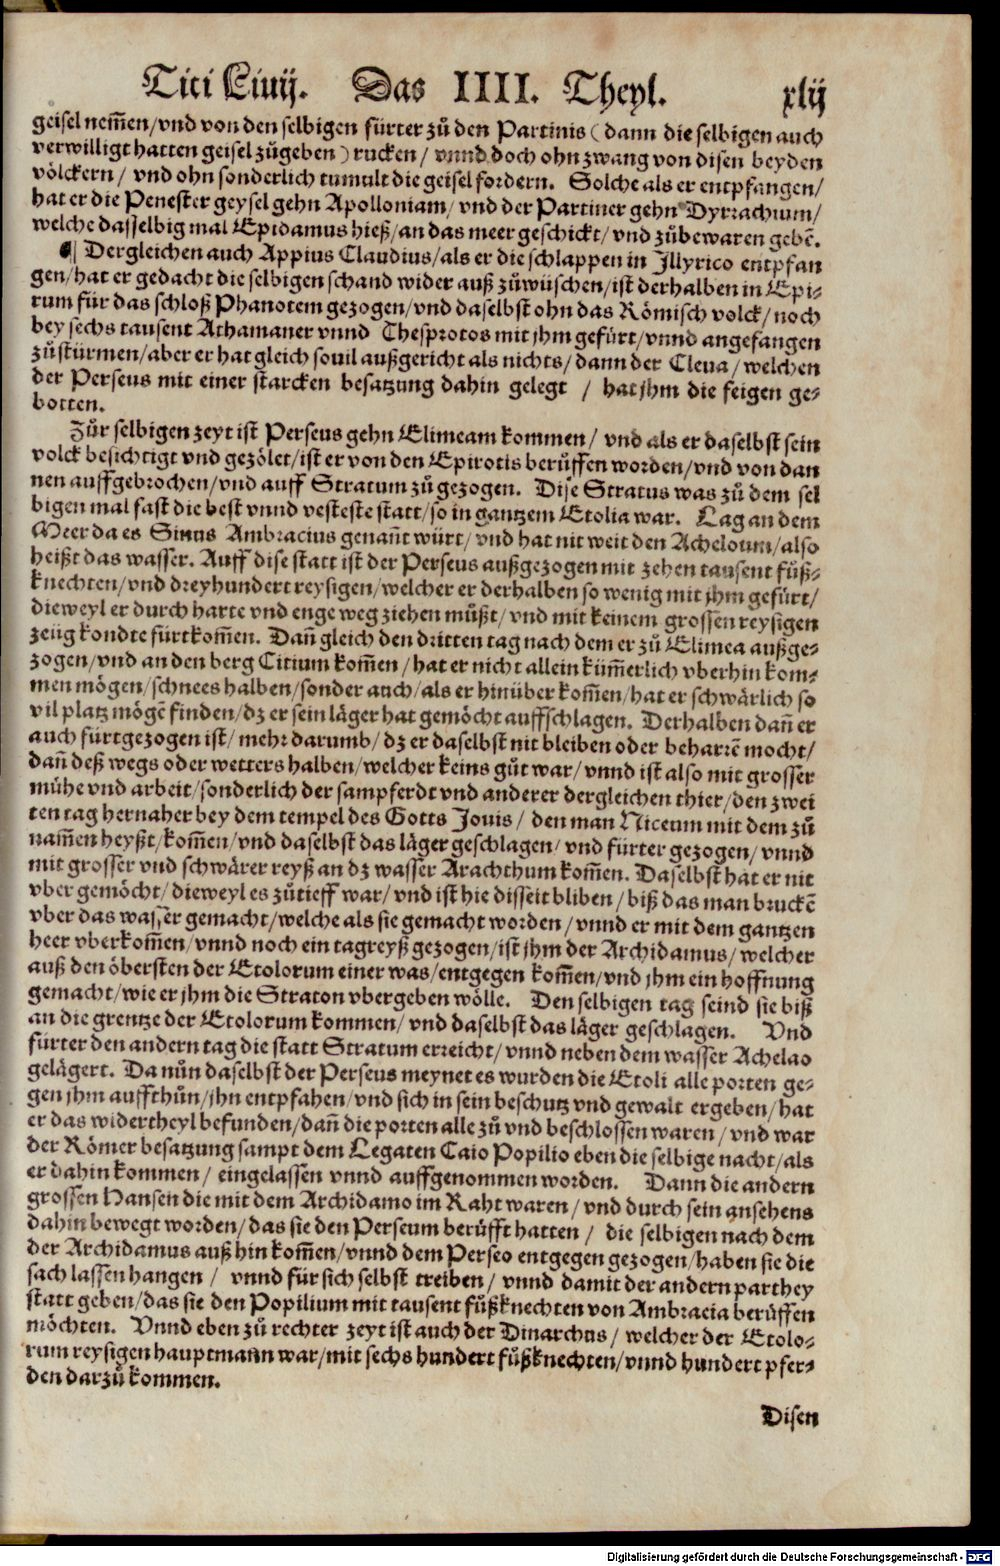 Titi Liuij. Das IIII. Theyl. xlij
geisel nem̃en/vnd von den selbigen fürter zů den Partinis (dann die selbigen auch
verwilligt hatten geisel zůgeben) rucken/ vnnd doch ohn zwang von disen beyden
völckern/ vnd ohn sonderlich tumult die geisel fordern. Solche als er entpfangen/
hat er die Penester geysel gehn Apolloniam/ vnd der Partiner gehn Dyrrachium/
welche dasselbig mal Epidamus hieß/an das meer geschickt/ vnd zůbewaren gebẽ.
¶ Dergleichen auch Appius Claudius/als er die schlappen in Jllyrico entpfan
gen/hat er gedacht die selbigen schand wider auß zůwüschen/ist derhalben in Epi⸗
rum für das schloß Phanotem gezogen/vnd daselbst ohn das Römisch volck/ noch
bey sechs tausent Athamaner vnnd Thesprotos mit jhm gefürt/vnnd angefangen
zůstürmen/aber er hat gleich souil außgericht als nichts/ dann der Cleua/ welchen
der Perseus mit einer starcken besatzung dahin gelegt / hat jhm die feigen ge⸗
botten.
Zůr selbigen zeyt ist Perseus gehn Elimeam kommen/ vnd als er daselbst sein
volck besichtigt vnd gezölet/ist er von den Epirotis berůffen worden/vnd von dan
nen auffgebrochen/vnd auff Stratum zů gezogen. Dise Stratus was zů dem sel
bigen mal fast die best vnnd vesteste statt/so in gantzem Etolia war. Lag an dem
Meer da es Sinus Ambracius genañt würt/ vnd hat nit weit den Acheloum/also
heißt das wasser. Auff dise statt ist der Perseus außgezogen mit zehen tausent fůß⸗
knechten/vnd dreyhundert reysigen/welcher er derhalben so wenig mit jhm gefürt/
dieweyl er durch harte vnd enge weg ziehen můßt/ vnd mit keinem grossen reysigen
zeüg kondte fürtkom̃en. Dañ gleich den dritten tag nach dem er zů Elimea außge⸗
zogen/vnd an den berg Citium kom̃en/hat er nicht allein küm̃erlich vberhin kom⸗
men mögen/schnees halben/sonder auch/als er hinüber kom̃en/hat er schwärlich so
vil platz mögẽ finden/dz er sein läger hat gemöcht auffschlagen. Derhalben dañ er
auch fürtgezogen ist/ mehr darumb/ dz er daselbst nit bleiben oder beharrẽ mocht/
dañ deß wegs oder wetters halben/welcher keins gůt war/ vnnd ist also mit grosser
mühe vnd arbeit/sonderlich der sampferdt vnd anderer dergleichen thier/den zwei
ten tag hernaher bey dem tempel des Gotts Jouis/ den man Niceum mit dem zů
nam̃en heyßt/kom̃en/vnd daselbst das läger geschlagen/ vnd fürter gezogen/ vnnd
mit grosser vnd schwärer reyß an dz wasser Arachthum kom̃en. Daselbst hat er nit
vber gemöcht/dieweyl es zůtieff war/ vnd ist hie disseit bliben/ biß das man bruckẽ
vber das wasser gemacht/welche als sie gemacht worden/ vnnd er mit dem gantzen
heer vberkom̃en/vnnd noch ein tagreyß gezogen/ist jhm der Archidamus/ welcher
auß den öbersten der Etolorum einer was/entgegen kom̃en/vnd jhm ein hoffnung
gemacht/wie er jhm die Straton vbergeben wölle. Den selbigen tag seind sie biß
an die grentze der Etolorum kommen/ vnd daselbst das läger geschlagen. Vnd
fürter den andern tag die statt Stratum erreicht/ vnnd neben dem wasser Achelao
gelägert. Da nůn daselbst der Perseus meynet es wurden die Etoli alle porten ge⸗
gen jhm auffthůn/jhn entpfahen/vnd sich in sein beschutz vnd gewalt ergeben/hat
er das widertheyl befunden/dañ die porten alle zů vnd beschlossen waren/ vnd war
der Römer besatzung sampt dem Legaten Caio Popilio eben die selbige nacht/als
er dahin kommen/ eingelassen vnnd auffgenommen worden. Dann die andern
grossen Hansen die mit dem Archidamo im Raht waren/ vnd durch sein ansehens
dahin bewegt worden/das sie den Perseum berůfft hatten / die selbigen nach dem
der Archidamus auß hin kom̃en/vnnd dem Perseo entgegen gezogen/haben sie die
sach lassen hangen / vnnd für sich selbst treiben/ vnnd damit der andern parthey
statt geben/das sie den Popilium mit tausent fůßknechten von Ambracia berůffen
möchten. Vnnd eben zů rechter zeyt ist auch der Dinarchus/ welcher der Etolo⸗
rum reysigen hauptmann war/mit sechs hundert fůßknechten/vnnd hundert pfer⸗
den darzů kommen.
Disen
Digitalisierung gefördert durch die Deutsche Forschungsgemeinschaft - DFG